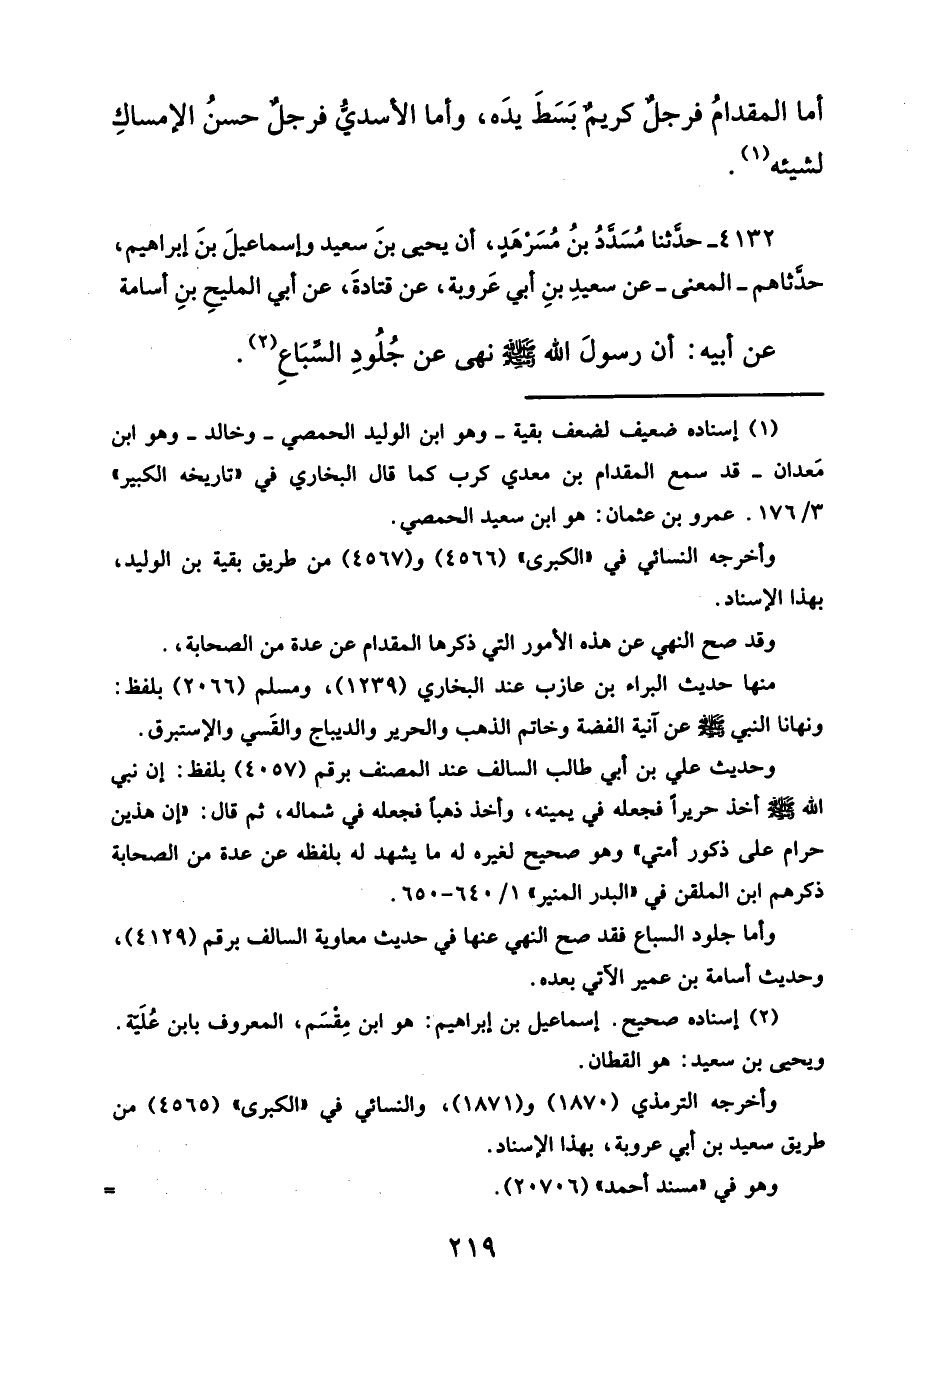 أما المقدامُ فرجلٌ كريمٌ بَسَطَ يدَه، وأما الأسديُّ فرجلٌ حسنُ الإمساكِ
لشيئه(١).
٤١٣٢ـ حدَّثنا مُسَدَّدُ بنُ مُسَرْهَدٍ، أن يحيى بنَ سعيد وإسماعيلَ بنَ إبراهيم،
حدَّثاهم ـ المعنى ـ عن سعيدِ بنِ أبي عَروبة، عن قتادةَ، عن أبي المليحِ بنِ أسامة
عن أبيه: أن رسولَ الله ﷺ نهى عن جُلُودِ السِّبَاعِ(٢).
(١) إسناده ضعيف لضعف بقية ـ وهو ابن الوليد الحمصي ـ وخالد ـ وهو ابن
مَعدان ـ قد سمع المقدام بن معدي كرب كما قال البخاري في «تاريخه الكبير»
٣/ ١٧٦. عمرو بن عثمان: هو ابن سعيد الحمصي.
وأخرجه النسائي في «الكبرى» (٤٥٦٦) و(٤٥٦٧) من طريق بقية بن الوليد،
بهذا الإسناد.
وقد صح النهي عن هذه الأمور التي ذكرها المقدام عن عدة من الصحابة، .
منها حديث البراء بن عازب عند البخاري (١٢٣٩)، ومسلم (٢٠٦٦) بلفظ:
ونهانا النبي ﷺ عن آنية الفضة وخاتم الذهب والحرير والديباج والقَسي والإستبرق.
وحديث علي بن أبي طالب السالف عند المصنف برقم (٤٠٥٧) بلفظ: إن نبي
الله ﷺ أخذ حريراً فجعله في يمينه، وأخذ ذهباً فجعله في شماله، ثم قال: «إن هذين
حرام على ذكور أمتي» وهو صحيح لغيره له ما يشهد له بلفظه عن عدة من الصحابة
ذكرهم ابن الملقن في «البدر المنير» ١/ ٦٤٠-٦٥٠.
وأما جلود السباع فقد صح النهي عنها في حديث معاوية السالف برقم (٤١٢٩)،
وحديث أسامة بن عمير الآتي بعده.
(٢) إسناده صحيح. إسماعيل بن إبراهيم: هو ابن مِقْسَم، المعروف بابن عُلَيّة.
ويحيى بن سعيد: هو القطان.
وأخرجه الترمذي (١٨٧٠) و(١٨٧١)، والنسائي في «الكبرى» (٤٥٦٥) من
طريق سعيد بن أبي عروبة، بهذا الإسناد.
وهو في «مسند أحمد» (٢٠٧٠٦). =
٢١٩